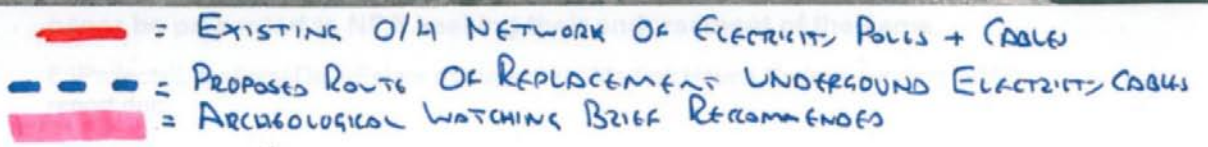 = EXISTING O/H NETWORK OF ELECTRICITY POLLS + CABLES
= PROPOSED ROUTE OF REPLACEMENT UNDERGOUND ELECTRICITY CABLES
= ARCHEOLOGICAL WATCHING BRIEF RECOMMENDED